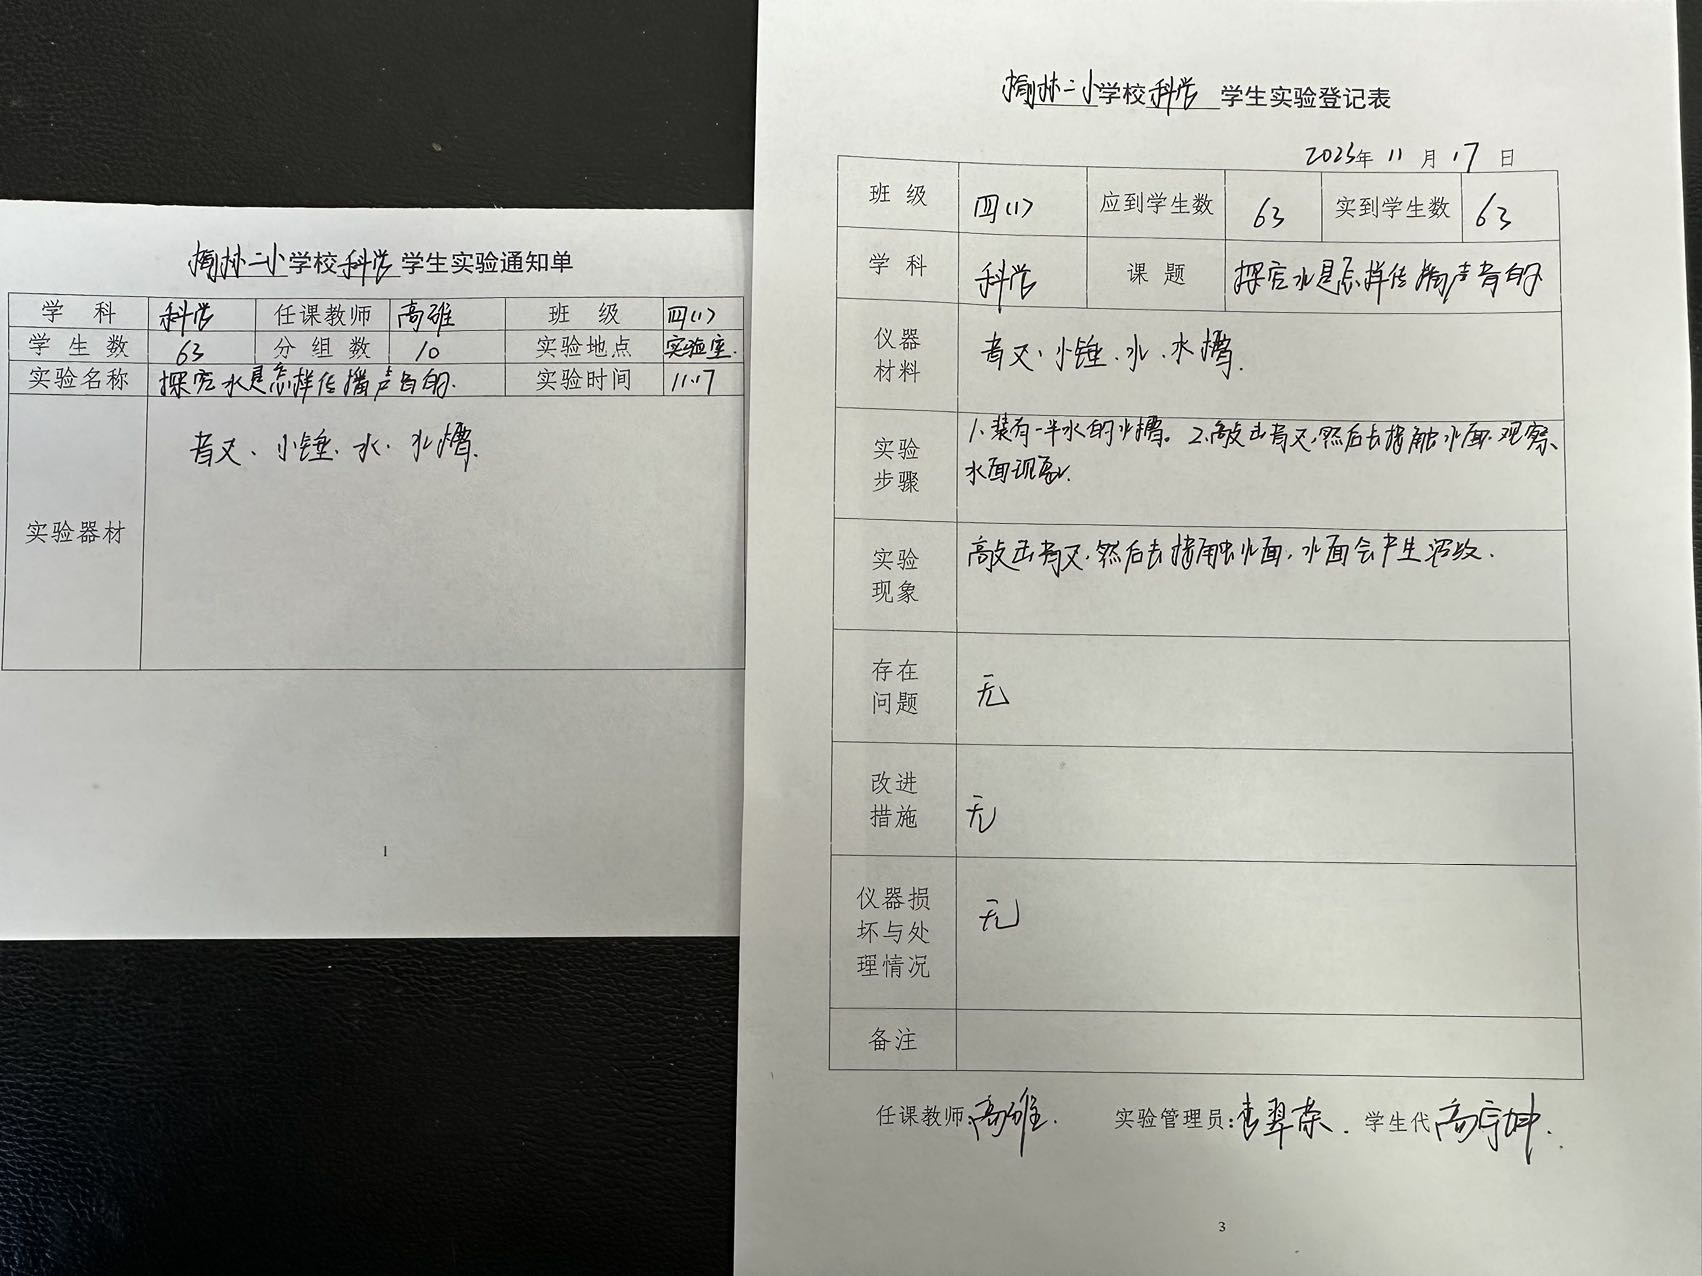 榆林二小学校科学学生实验通知单
学 科 科学 任课教师 高雄 班 级 四(1)
学生数 63 分组数 10 实验地点 实验室.
实验名称 探究水是怎样传播声音的. 实验时间 11.17
实验器材 音叉、小锤、水、水槽.
1
榆林二小学校科学 学生实验登记表
2023年 11 月 17 日
班 级 四(1) 应到学生数 63 实到学生数 63
学 科 科学 课 题 探究水是怎样传播声音的
仪器
材料
音叉、小锤、水、水槽.
实验
步骤
1、装有一半水的水槽。2.敲击音叉,然后去接触水面.观察、
水面现象.
实验
现象
敲击音叉,然后去接触水面,水面会产生波纹.
存在
问题
无
改进
措施
无
仪器损
坏与处
理情况
无
备注
任课教师:高雄. 实验管理员: 翠荣. 学生代 高宇坤.
3